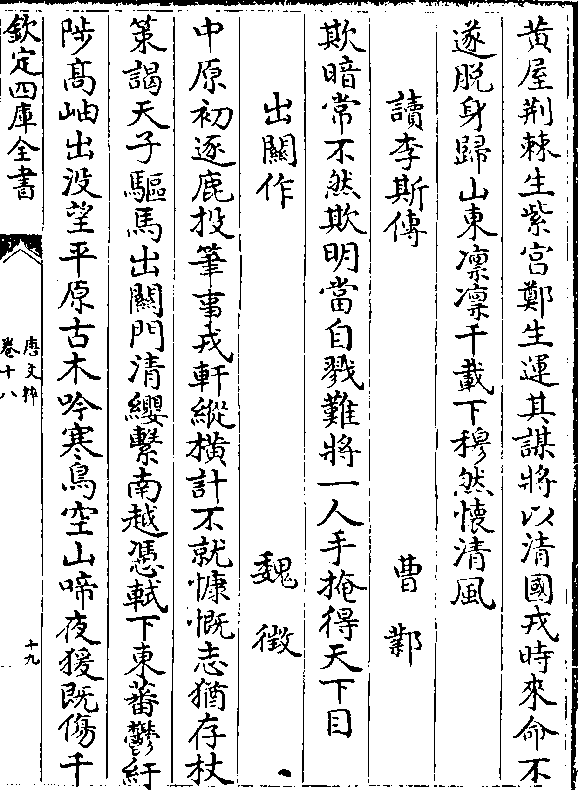 黄屋荆棘生紫宫鄭生運其謀將以清國戎時來命不
遂脱身歸山東凛凛千載下穆然懷清風
讀李斯傳　曹鄴
欺暗常不然欺明當自戮難將一人手掩得天下目
出關作　魏徵
中原初逐鹿投筆事戎軒縱横計不就慷慨志猶存杖
策謁天子驅馬出關門清纓繫南越憑軾下東蕃鬱紆
陟髙岫出没望平原古木吟寒鳥空山啼夜猨既傷千
欽定四庫全書
唐文粹
卷十八
十九